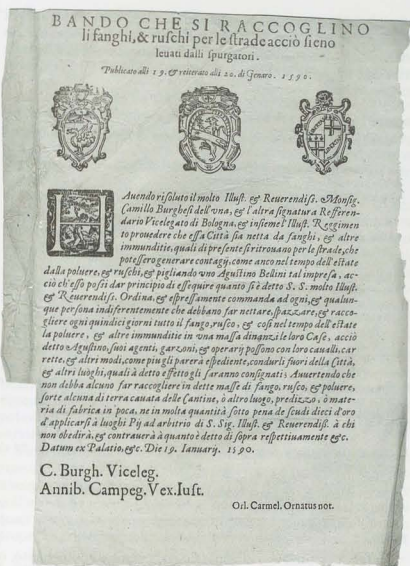 BANDO CHE SI RACCOGLINO
li fanghi, & ruschi per le strade acciò sieno
leuati dalli spurgatori.
Publicato alli 19. & reiterato alli 20. di Genaro. 1590.
HAuendo risoluto il molto Illust. & Reuerendiss. Monsig.
Camillo Burghesi dell'vna, & l'altra signatura Refferen-
dario Vicelegato di Bologna, & insieme l'Illust. Reggimen
to prouedere che essa Città sia netta da fanghi, & altre
immunditie, quali di presente si ritrouano per le strade, che
potessero generare contagij, come anco nel tempo dell'estate
dalla poluere, & ruschi, & pigliando vno Agustino Bellini tal impresa, ac-
ciò ch'esso possi dar principio di essequire quanto si è detto S. S. molto Illust.
& Reuerendiss. Ordina, & espressamente commanda ad ogni, & qualun-
que persona indiferentemente che debbano far nettare, spazzare, & racco-
gliere ogni quindici giorni tutto il fango, rusco, & così nel tempo dell'estate
la poluere, & altre immunditie in vna massa dinanzi le loro Case, acciò
detto Agustino, suoi agenti, garzoni, & operarij possono con loro caualli, car
rette, & altri modi, come piu gli parerà espediente, condurli fuori della Città,
& altri luoghi, quali à detto effetto gli saranno consignati; Auuertendo che
non debba alcuno far raccogliere in dette masse di fango, rusco, & poluere,
sorte alcuna di terra cauata delle Cantine, ò altro luogo, predizzo, ò mate-
ria di fabrica in poca, ne in molta quantità sotto pena de scudi dieci d'oro
d'applicarsi à luoghi Pij ad arbitrio di S. Sig. Illust. & Reuerendiss. à chi
non obedirà, & contrauerà à quanto è detto di sopra respettiuamente &c.
Datum ex Palatio, &c. Die 19. Ianuarij. 1590.
C. Burgh. Viceleg.
Annib. Campeg. Vex. Iust.
Orl. Carmel. Ornatus not.